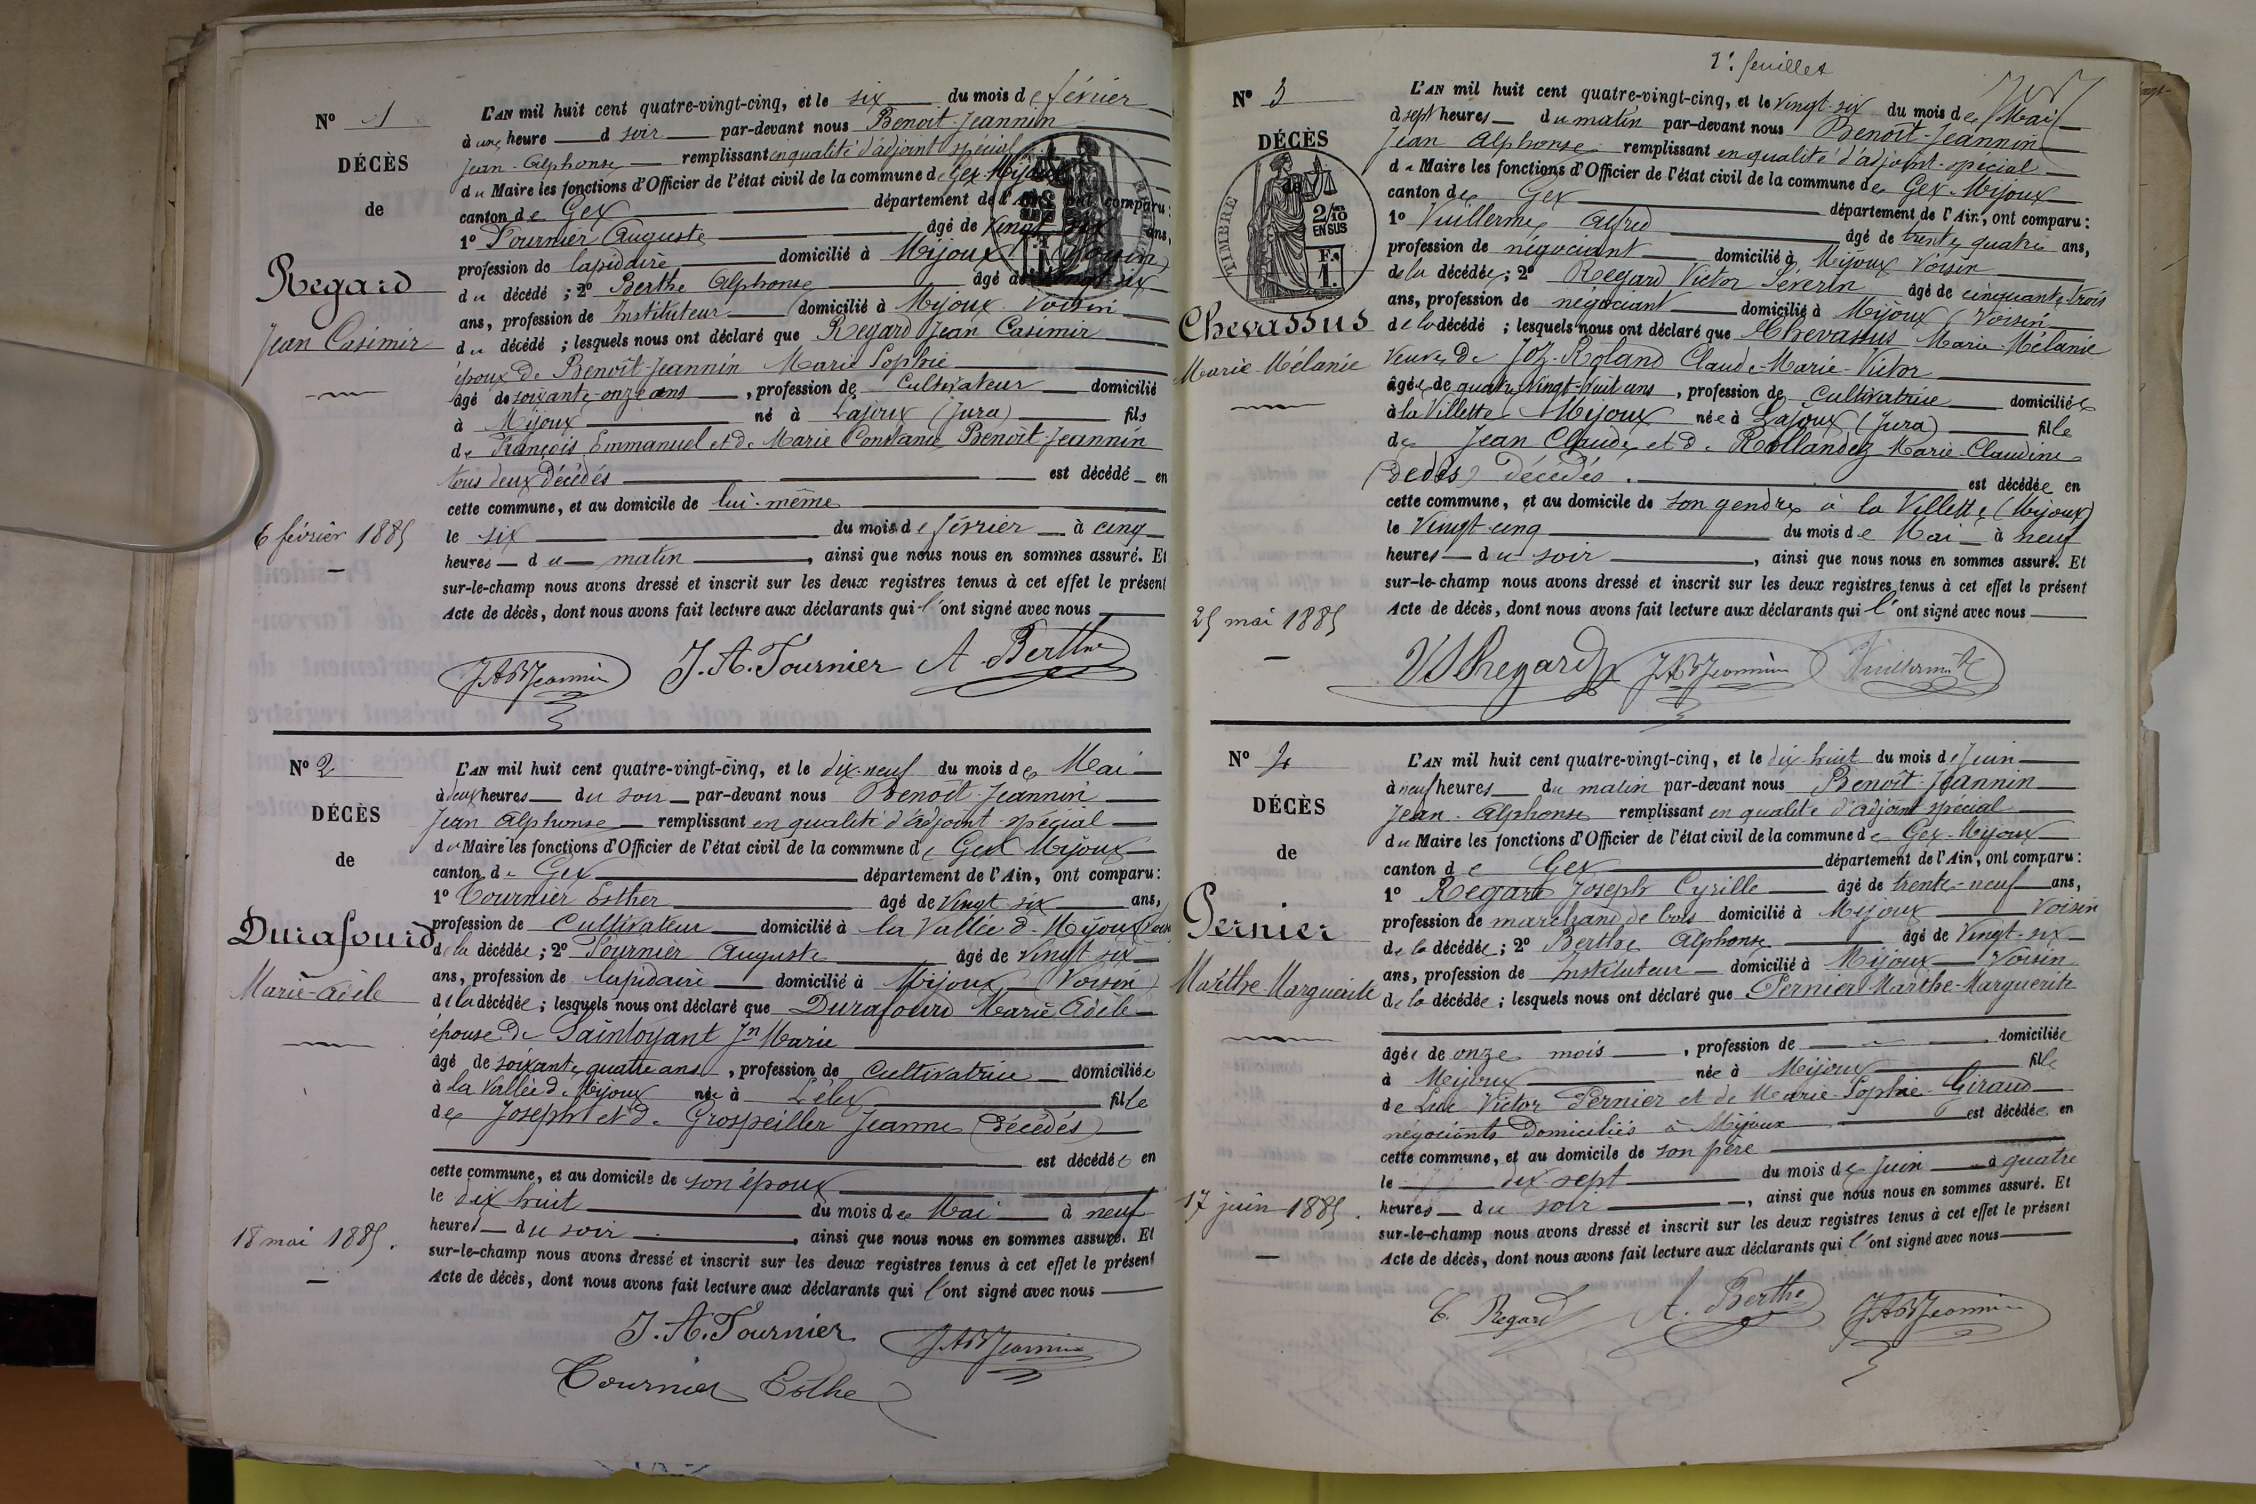 Nº 1
DÉCÈS
de
Regard
Jean Casimir
6 février 1885
L'AN mil huit cent quatre-vingt-cinq, et le six du mois de février
à une heure du soir par-devant nous Benoit-Jeannin
Jean-Alphonse remplissant en qualité d'adjoint spécial
du Maire les fonctions d'Officier de l'état civil de la commune de Gex-Mijoux
canton de Gex département de l'Ain, ont comparu:
1º Tournier Auguste âgé de vingt six ans,
profession de lapidaire domicilié à Mijoux (Voisin)
du décédé; 2º Berthe Alphonse âgé de vingt six
ans, profession de Instituteur domicilié à Mijoux Voisin
du décédé; lesquels nous ont déclaré que Regard Jean Casimir
époux de Benoît-Jeannin Marie Sophie
âgé de soixante-onze ans, profession de Cultivateur domicilié
à Mijoux né à Lajoux (Jura) fils
de François Emmanuel et de Marie Constance Benoît-Jeannin
tous deux décédés est décédé en
cette commune, et au domicile de lui-même
le six du mois de février à cinq
heures du matin, ainsi que nous nous en sommes assuré. Et
sur-le-champ nous avons dressé et inscrit sur les deux registres tenus à cet effet le présent
Acte de décès, dont nous avons fait lecture aux déclarants qui l'ont signé avec nous
JABtJeannin J.A. Tournier A. Berthe
Nº 2
DÉCÈS
de
Durafourd
Marie-Adèle
18 mai 1885.
L'AN mil huit cent quatre-vingt-cinq, et le dix-neuf du mois de Mai
à deux heures du soir par-devant nous Benoit-Jeannin
Jean Alphonse remplissant en qualité d'adjoint spécial
du Maire les fonctions d'Officier de l'état civil de la commune de Gex Mijoux
canton de Gex département de l'Ain, ont comparu:
1º Tournier Esther âgé de vingt six ans,
profession de Cultivateur domicilié à la Vallée d. Mijoux (Voisin
de la décédée; 2º Tournier Auguste âgé de vingt six
ans, profession de lapidaire domicilié à Mijoux (Voisin)
de la décédée; lesquels nous ont déclaré que Durafourd Marie Adèle
épouse de Saintoyant Jn Marie
âgé de soixante quatre ans, profession de Cultivatrice domiciliée
à la Vallée d. Mijoux née à Lélex fille
de Joseph et d. Grospeiller Jeanne (décédés)
est décédée en
cette commune, et au domicile de son époux
le dix huit du mois de Mai à neuf
heures du soir, ainsi que nous nous en sommes assuré. Et
sur-le-champ nous avons dressé et inscrit sur les deux registres tenus à cet effet le présent
Acte de décès, dont nous avons fait lecture aux déclarants qui l'ont signé avec nous
J.A. Tournier JABtJeannin
Tournier Esther
2e feuillet
Nº 3
DÉCÈS
de
TIMBRE
2/10
EN SUS
F.
1.
Chevassus
Marie-Mélanie
25 mai 1885
L'AN mil huit cent quatre-vingt-cinq, et le vingt-six du mois de Mai
à sept heures du matin par-devant nous Benoît-Jeannin
Jean Alphonse remplissant en qualité d'adjoint-spécial
du Maire les fonctions d'Officier de l'état civil de la commune de Gex-Mijoux
canton de Gex département de l'Ain, ont comparu:
1º Vuillerme Alfred âgé de trente quatre ans,
profession de négociant domicilié à Mijoux Voisin
de la décédée; 2º Regard Victor Séverin âgé de cinquante trois
ans, profession de négociant domicilié à Mijoux (Voisin
de la décédé; lesquels nous ont déclaré que Chevassus Marie-Mélanie
Veuve de Joz-Roland Claude-Marie-Victor
âgée de quatre vingt-huit ans, profession de Cultivatrice domiciliée
à la Villette (Mijoux née à Lajoux (Jura) fille
de Jean Claude et d. Rollandez Marie-Claudine
(dédés) décédés. est décédée en
cette commune, et au domicile de son gendre à la Villette (Mijoux)
le vingt-cinq du mois de Mai à neuf
heures du soir, ainsi que nous nous en sommes assuré. Et
sur-le-champ nous avons dressé et inscrit sur les deux registres tenus à cet effet le présent
Acte de décès, dont nous avons fait lecture aux déclarants qui l'ont signé avec nous
VSRegard JABtJeannin
Nº 4
DÉCÈS
de
Pernier
Marthe-Marguerite
17 juin 1885.
L'AN mil huit cent quatre-vingt-cinq, et le dix-huit du mois de Juin
à neuf heures du matin par-devant nous Benoît-Jeannin
Jean-Alphonse remplissant en qualité d'adjoint spécial
du Maire les fonctions d'Officier de l'état civil de la commune de Gex-Mijoux
canton de Gex département de l'Ain, ont comparu:
1º Regard Joseph Cyrille âgé de trente-neuf ans,
profession de marchand de bois domicilié à Mijoux Voisin
de la décédée; 2º Berthe Alphonse âgé de vingt-six
ans, profession de Instituteur domicilié à Mijoux Voisin
de la décédée; lesquels nous ont déclaré que Pernier Marthe-Marguerite
âgée de onze mois, profession de domiciliée
à Mijoux née à Mijoux fille
de Luc Victor Pernier et de Marie-Sophie Giraud
négociants domiciliés à Mijoux est décédée en
cette commune, et au domicile de son père
le dix sept du mois de Juin à quatre
heures du soir, ainsi que nous nous en sommes assuré. Et
sur-le-champ nous avons dressé et inscrit sur les deux registres tenus à cet effet le présent
Acte de décès, dont nous avons fait lecture aux déclarants qui l'ont signé avec nous
C. Regard A. Berthe JABtJeannin